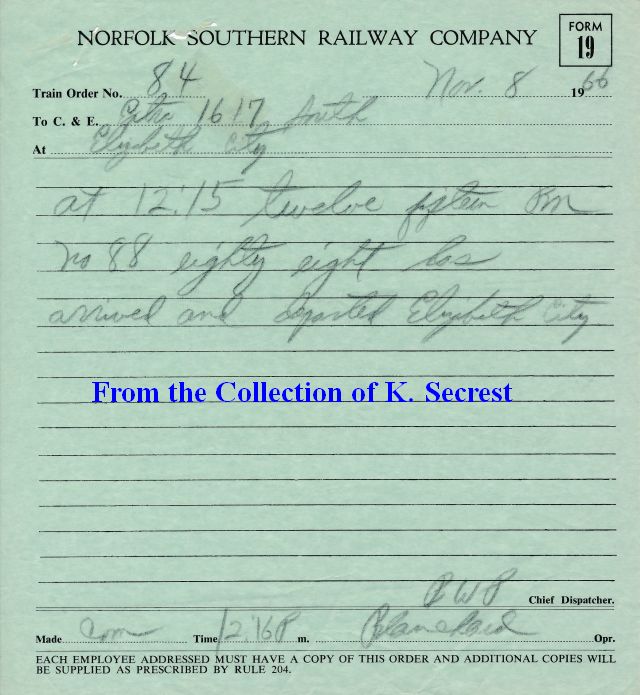 NORFOLK SOUTHERN RAILWAY COMPANY
FORM
19
Train Order No. 84 Nov. 8 1966
To C. & E. Extra 1617 South
At Elizabeth City
at 12:15 twelve fifteen PM
no 88 eighty eight has
arrived and departed Elizabeth City
From the Collection of K. Secrest
Chief Dispatcher.
Made com Time 12:16 P m. Blanchard Opr.
EACH EMPLOYEE ADDRESSED MUST HAVE A COPY OF THIS ORDER AND ADDITIONAL COPIES WILL
BE SUPPLIED AS PRESCRIBED BY RULE 204.